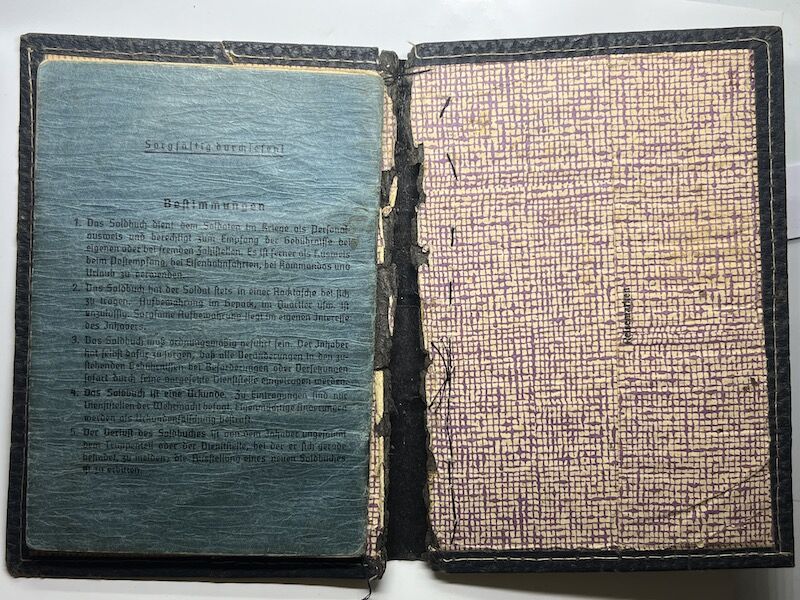 Sorgfältig durchlesen!
Bestimmungen
1. Das Soldbuch dient dem Soldaten im Kriege als Personal-
ausweis und berechtigt zum Empfang der Gebührnisse bei
eigenen oder bei fremden Zahlstellen. Es ist ferner als Ausweis
beim Postempfang, bei Eisenbahnfahrten, bei Kommandos und
Urlaub zu verwenden.
2. Das Soldbuch hat der Soldat stets in einer Rocktasche bei sich
zu tragen. Aufbewahrung im Gepäck, im Quartier usw. ist
unzulässig. Sorgsame Aufbewahrung liegt im eigenen Interesse
des Inhabers.
3. Das Soldbuch muß ordnungsmäßig geführt sein. Der Inhaber
hat selbst dafür zu sorgen, daß alle Veränderungen in den zu-
stehenden Gebührnissen bei Beförderungen oder Versetzungen
sofort durch seine vorgesetzte Dienststelle eingetragen werden.
4. Das Soldbuch ist eine Urkunde. Zu Eintragungen sind nur
Dienststellen der Wehrmacht befugt. Eigenmächtige Änderungen
werden als Urkundenfälschung bestraft.
5. Der Verlust des Soldbuches ist von dem Inhaber ungesäumt
dem Truppenteil oder der Dienststelle, bei der er sich gerade
befindet, zu melden; die Ausstellung eines neuen Soldbuches
ist zu erbitten.